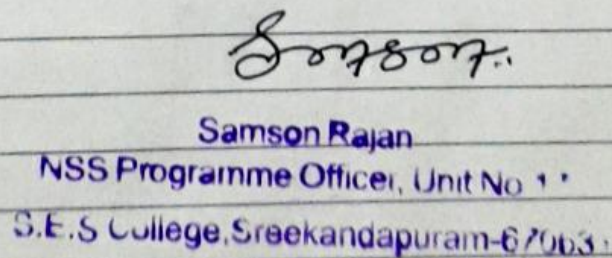 Samson..
Samson Rajan
NSS Programme Officer, Unit No
S.E.S College, Sreekandapuram-